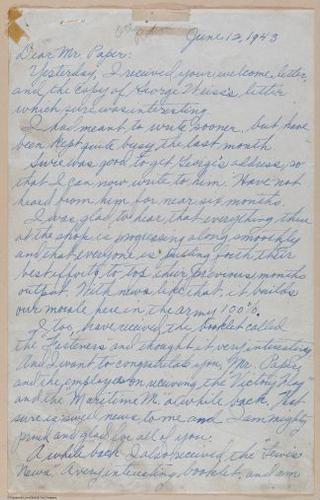 June 12, 1943
Dear Mr. Paper:
Yesterday, I received your welcome letter,
and the copy of George Weiss's letter
which sure was interesting.
I had meant to write sooner, but have
been kept quite busy the last month.
Swie was good to get Georg's address, so
that I can now write to him. Have not
heard from him for near six months.
I was glad to hear, that everything, there
at the shop is progressing along smoothly
and that everyone is putting forth their
best efforts to top their previous months
output. With news like that, it builds
our morale here in the army 100%.
I too, have received the booklet called
the Fasteners and thought it very interesting
And I want to congratulate you, Mr. Paper,
and the employees on receiving the "Victory Flag"
and the Maritime "M" a while back. That
sure is swell news to me and I am mighty
proud and glad for all of you.
A while back I also received the "Lewis
News". A very interesting booklet, and am